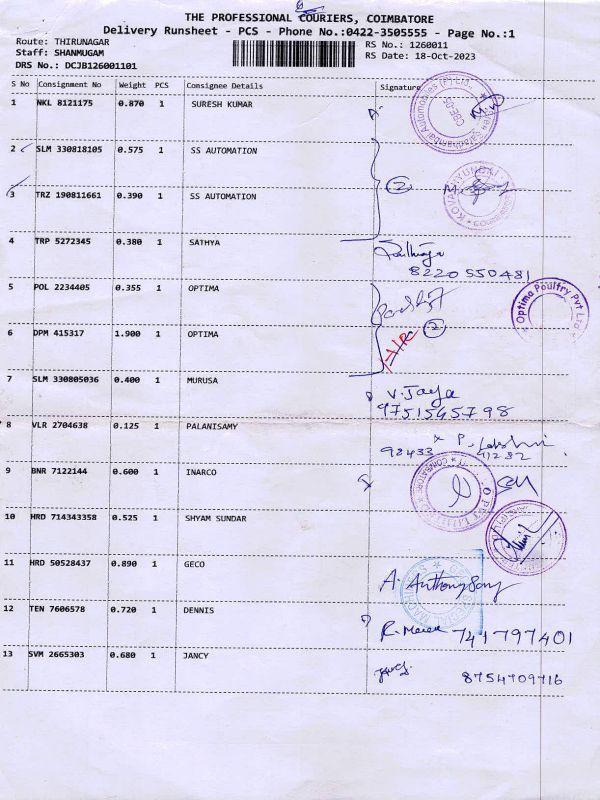 THE PROFESSIONAL COURIERS, COIMBATORE
Delivery Runsheet - PCS - Phone No.:0422-3505555 - Page No.:1
Route: THIRUNAGAR
RS No.: 1260011
Staff: SHANMUGAM
RS Date: 18-Oct-2023
DRS No.: DCJB126001101
S No Consignment No Weight PCS Consignee Details Signature
1 NKL 8121175 0.870 1 SURESH KUMAR
CBE-06
2 SLM 330818105 0.575 1 SS AUTOMATION
3 TRZ 190811661 0.390 1 SS AUTOMATION
2
4 TRP 5272345 0.380 1 SATHYA
8220 550481
5 POL 2234405 0.355 1 OPTIMA
Optima Poultry Pvt Ltd
6 DPM 415317 1.900 1 OPTIMA
2
7 SLM 330805036 0.400 1 MURUSA
V. Jaya
9751545798
8 VLR 2704638 0.125 1 PALANISAMY
98433 41232
9 BNR 7122144 0.600 1 INARCO
10 HRD 714343358 0.525 1 SHYAM SUNDAR
11 HRD 50528437 0.890 1 GECO
A. Anthony
12 TEN 7606578 0.720 1 DENNIS
741797401
13 SVM 2665303 0.680 1 JANCY
8754709716